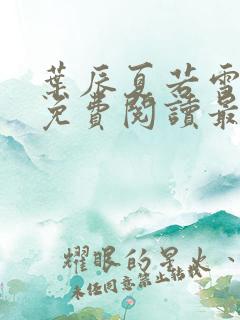 葉辰夏若雪
免費閱讀最
耀眼的星火、
未经同意禁止转载